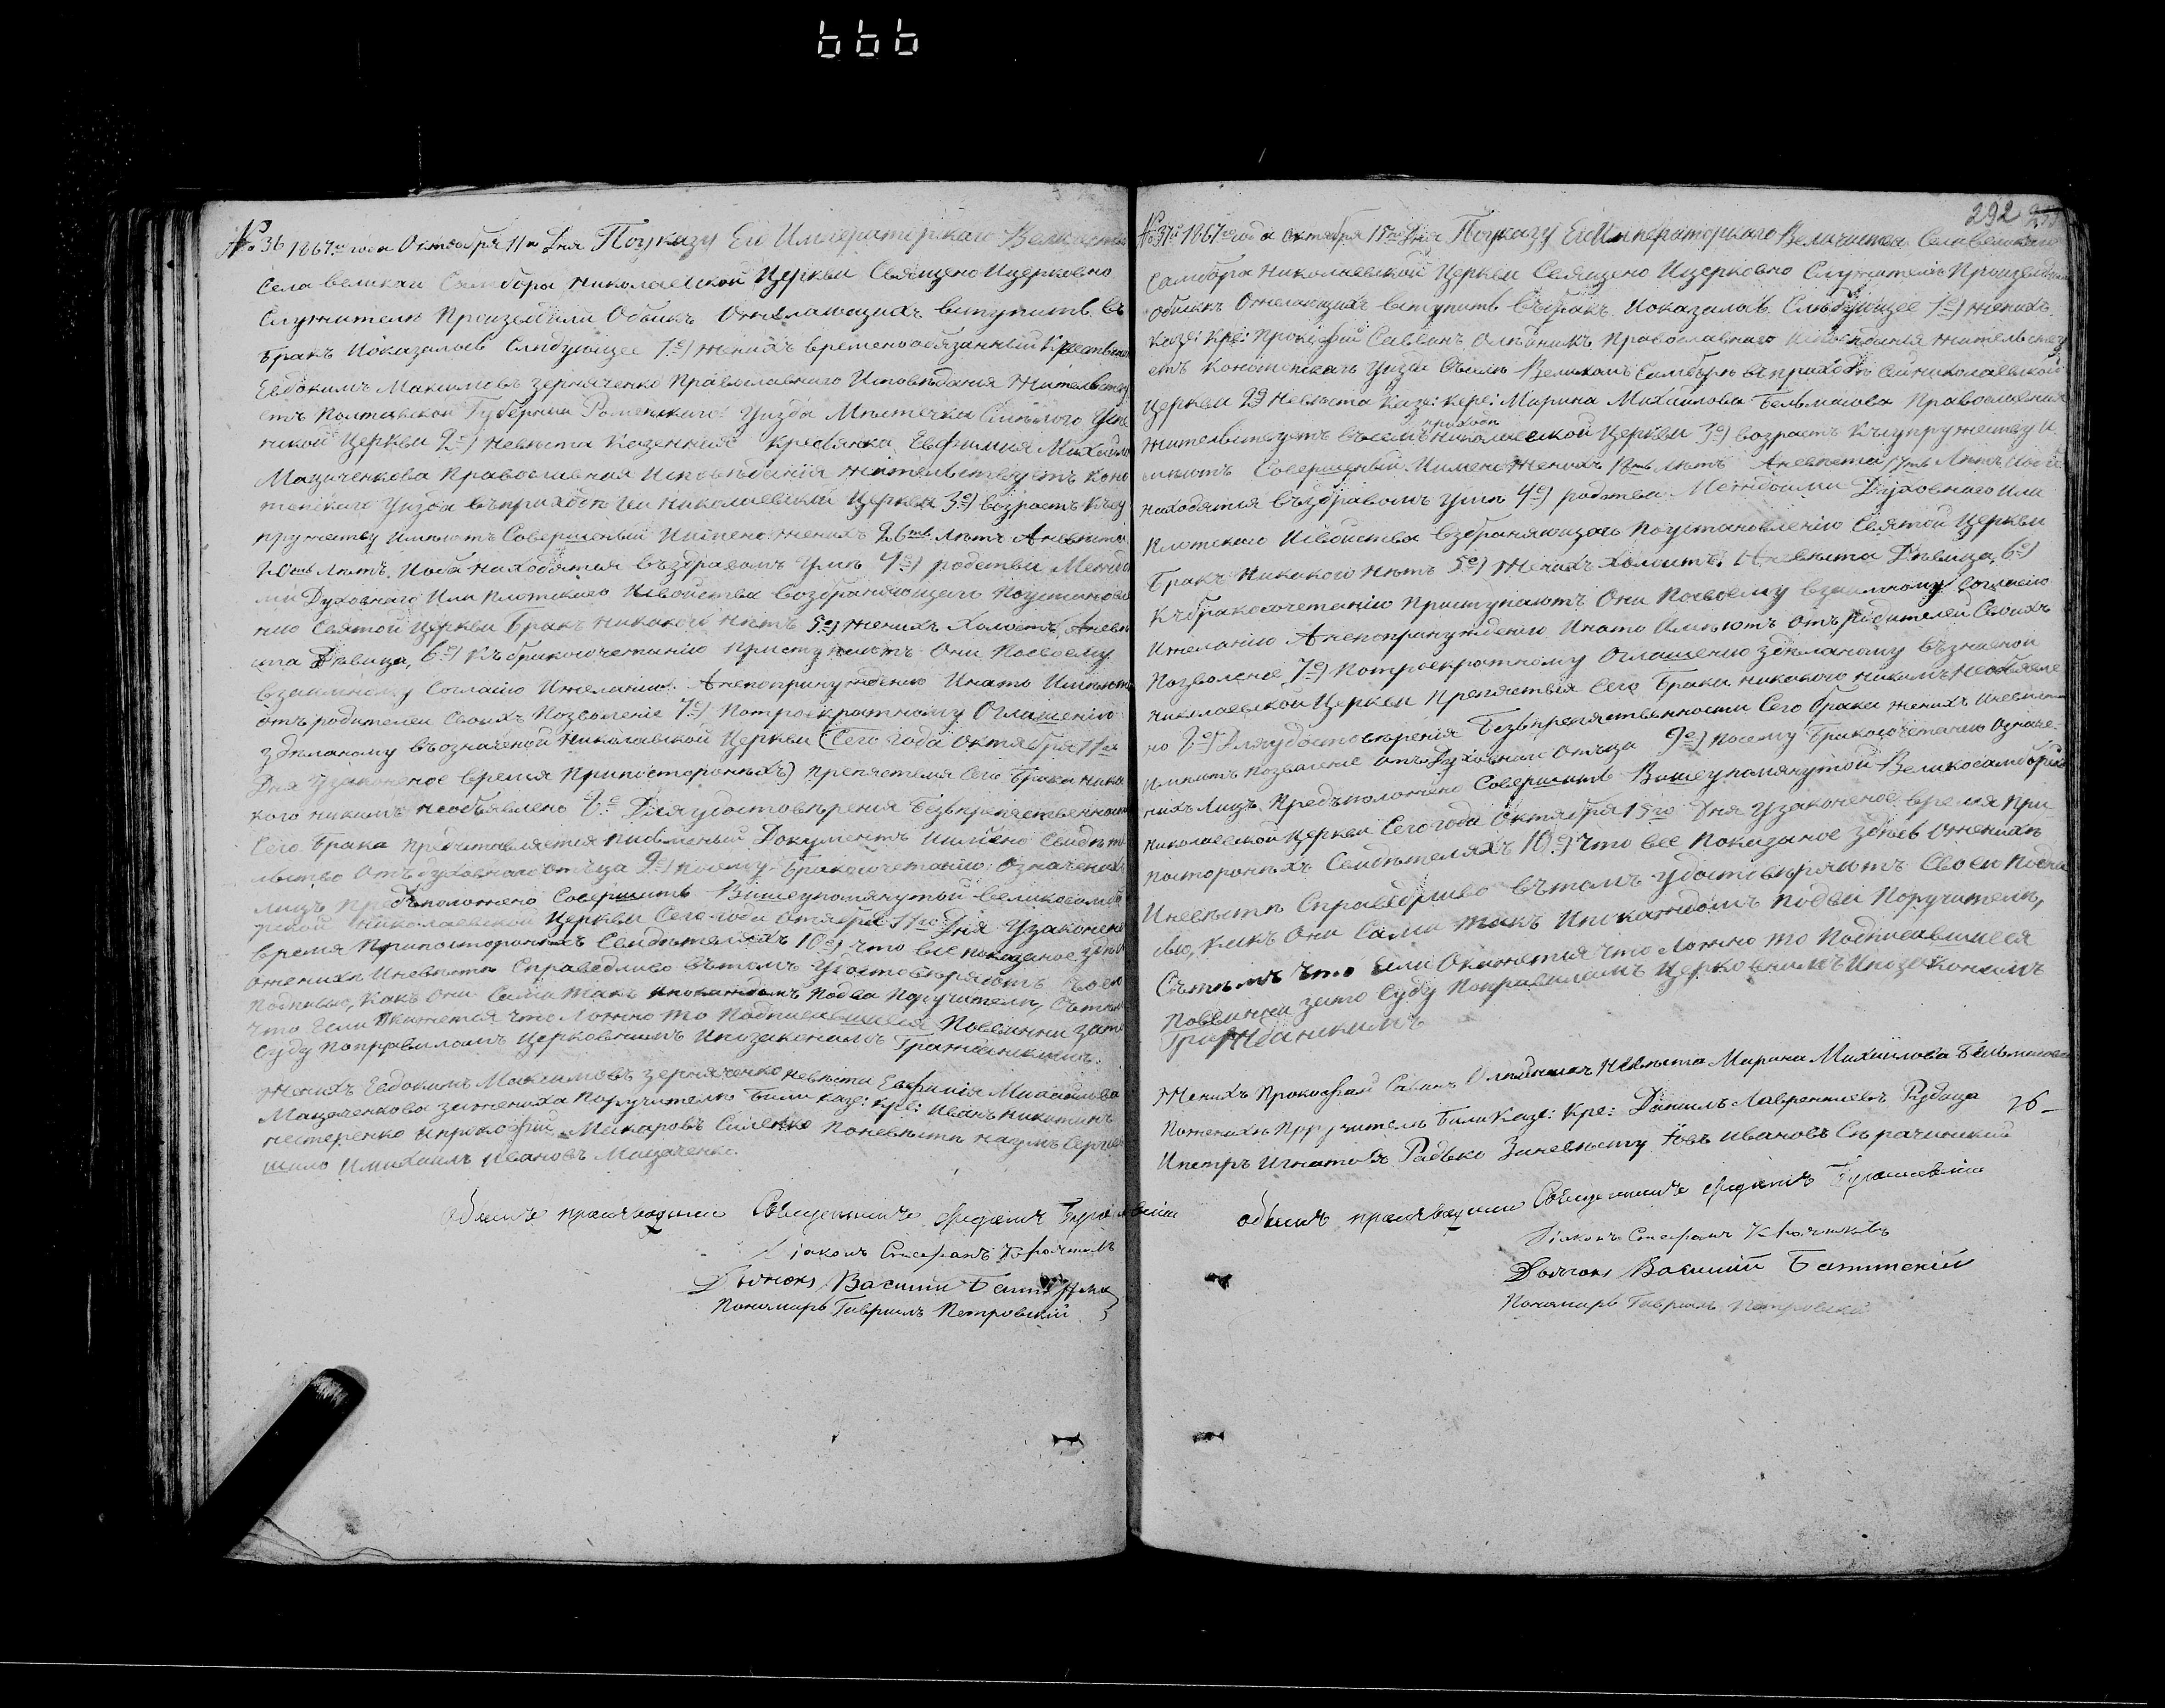 666
№ 36 1861го года Октября 11го Дня По указу Его Императорскаго Величества
Села великаи Самбора Николаевской Церкви Священо Ицерковно
Служители Произвели Обыскъ Ожелающихъ вступить въ
Бракъ Иоказалось Слидующее 1е) Женихъ временообязанный Крестьян
Евдокимъ Максимовъ Зерняченко Православнаго Исповѣдания Жительству
етъ Полтавской Губерніи Роменскаго Уизда Мѣстечка Смѣлого Успе
ниской Церкви 2е) Невѣста Казенная Кресянка Евфимия Михайло
Мацаченкова Православная Исповѣданія Жительствуетъ Коно
топскаго Уизда въприходѣ Сеи Николаевской Церкви 3е) возрастъ Късу
пружеству Имѣютъ Совершеный Имѣено Женихъ 26ть Лѣтъ Аневѣста
20ть Лѣтъ. Иоба Находятся въздравомъ Умѣ 4е) родства Между
ми Духовнаго Или Плотскаго Исвойства возбраняющаго Поустановле
нию Святой Церкви Бракъ Никакого Нѣтъ 5е) Женихъ Холостъ, Аневѣ
ста Дѣвица, 6е) Къбракосочетанію Приступаютъ Они Посвоему
взаимному Согласію Ижеланію. Анепопринуждению Инато Имѣютъ
отъ родителеи Своихъ Позволеніе 7е) Потроекратному Оглашенію
здѣланому въозначеной Николавской Церкви (Сего Года Октября 11го
Дня Узаконеное Время Припосторонныхъ) препяствия Сего Брака Ника
кого никимъ Необъявлено 8е Дляудостовѣрения Безъпрепяственности
Сего Брака Представляется Писменый Документъ Имѣено Свидѣте
льство Отъ духовнаго отъца 9е) Посему Бракосочетанію Означених
лицъ Предъположено Совершить Вишеупомянутой великосамбо
рской Николаевской Церкви Сего года Октября 11го Дня Узаконено
время Припостороныхъ Свидѣтеляхъ 10е) Что все показаное здѣс
ожених Иневѣстѣ Справедливо вътомъ Удостовѣряютъ Своею
Подписью, Какъ Они Сами Такъ Ипокаждомъ Подва Поручители, Сътим
что Если Окажется что Ложно То Подписавшиеся Повинни зато
Суду Поправиламъ Церковнимъ Ипозаконамъ Гражданскимъ.
Женихъ Евдокимъ Максимовъ Зерняченко Невѣста Евфимія Михайлова
Мацаченкова За жениха Поручители Били казе: кре: Иванъ Никитинъ
Нестеренко Ипрокофій Макаровъ Силенко Поневѣстѣ Наумъ Сергіев
шило Имихаилъ Ивановъ Мацаченко.
Обыскъ производили Священникъ
Діаконъ Стефанъ
Дьячокъ Василий
Пономарь Гавриилъ Петровскій
292
№ 37й 1861го года Октября 15го Дня По указу Его Императорскаго Величества Села великаго
Самбора Николаевской Церкви Священо Ицерковно Служители Произвели
обыскъ Ожелающихъ вступить въбракъ Иоказалось Слѣдующее 1е) Женихъ
Казе: Кре: Прокофій Саввинъ Олѣйникъ Православнаго Исповѣдания жительству
етъ Конотопскаго Уизда Въселѣ Великомъ Самборѣ въприходѣ Сейниколаевской
Церкви 2е) Невѣста Казе: кре: Марина Михайлова Бельмасова Православная
приходѣ
Жительствуетъ въсемъ Николаевской Церкви 3е) возрастъ Късупружеству И
мѣютъ Совершеный Имено Женихъ 18ть Лѣтъ Аневѣста 17ть Лѣтъ Иоба
Находятся въздравомъ Умѣ 4е) родства Междоими Духовнаго Или
Плотскаго Исвойства възбраняющаго Поустановленію Святой Церкви
Бракъ Никакого Нѣтъ 5е) Женихъ Холостъ. Аневѣста Дѣвица, 6е)
Къбракосочетанію Приступаютъ Они Посвоему взаимному Согласію
Ижеланію Анепопринуждению Инато Имѣютъ Отъ Родителей Своихъ
Позволение 7е) Потроекратному Оглашению здѣланому възнасной
Николаевской Церкви Препяствія Сего Брака никакого Никимъ Необъявле
но 8е) Дляудостовѣрения Безъпрепяственности Сего брака Женихъ Иневѣста
Имѣютъ Позволение отъ Духовнаго Отъца 9е) Посему Бракосочетанию Означе
нихъ лицъ Предъположено Совершить Вишеупомянутой Великосамборской
Николаевской Церкви Сего года Октября 15го Дня Узаконеное время При
посторонихъ Свидѣтеляхъ 10е) Что все Показаное здѣсь Оженихѣ
Иневѣстѣ Справедливо вътомъ Удостовѣряютъ Своеи Подпи
сью, какъ Они Сами такъ Ипокаждомъ Подва Поручители,
Сътимъ что Если Окажется что Ложно то Подписавшиеся
Повинни зато Суду Поправиламъ Церковнимъ Ипозаконамъ
Гражданскимъ
Женихъ Прокофій Савинъ Олѣйникъ Невѣста Марина Михайлова Бельмасова
Поженихѣ Поручители Били Казе: Кре: Данилъ Лаврентиевъ Рубаца 26 —
Ипетръ Игнатовъ Радько Заневѣсту Іовъ Ивановъ Сърачинский
обыскъ производили Священникъ
Діаконъ Стефанъ
Дьячокъ Василий
Пономарь Гавриилъ Петровский